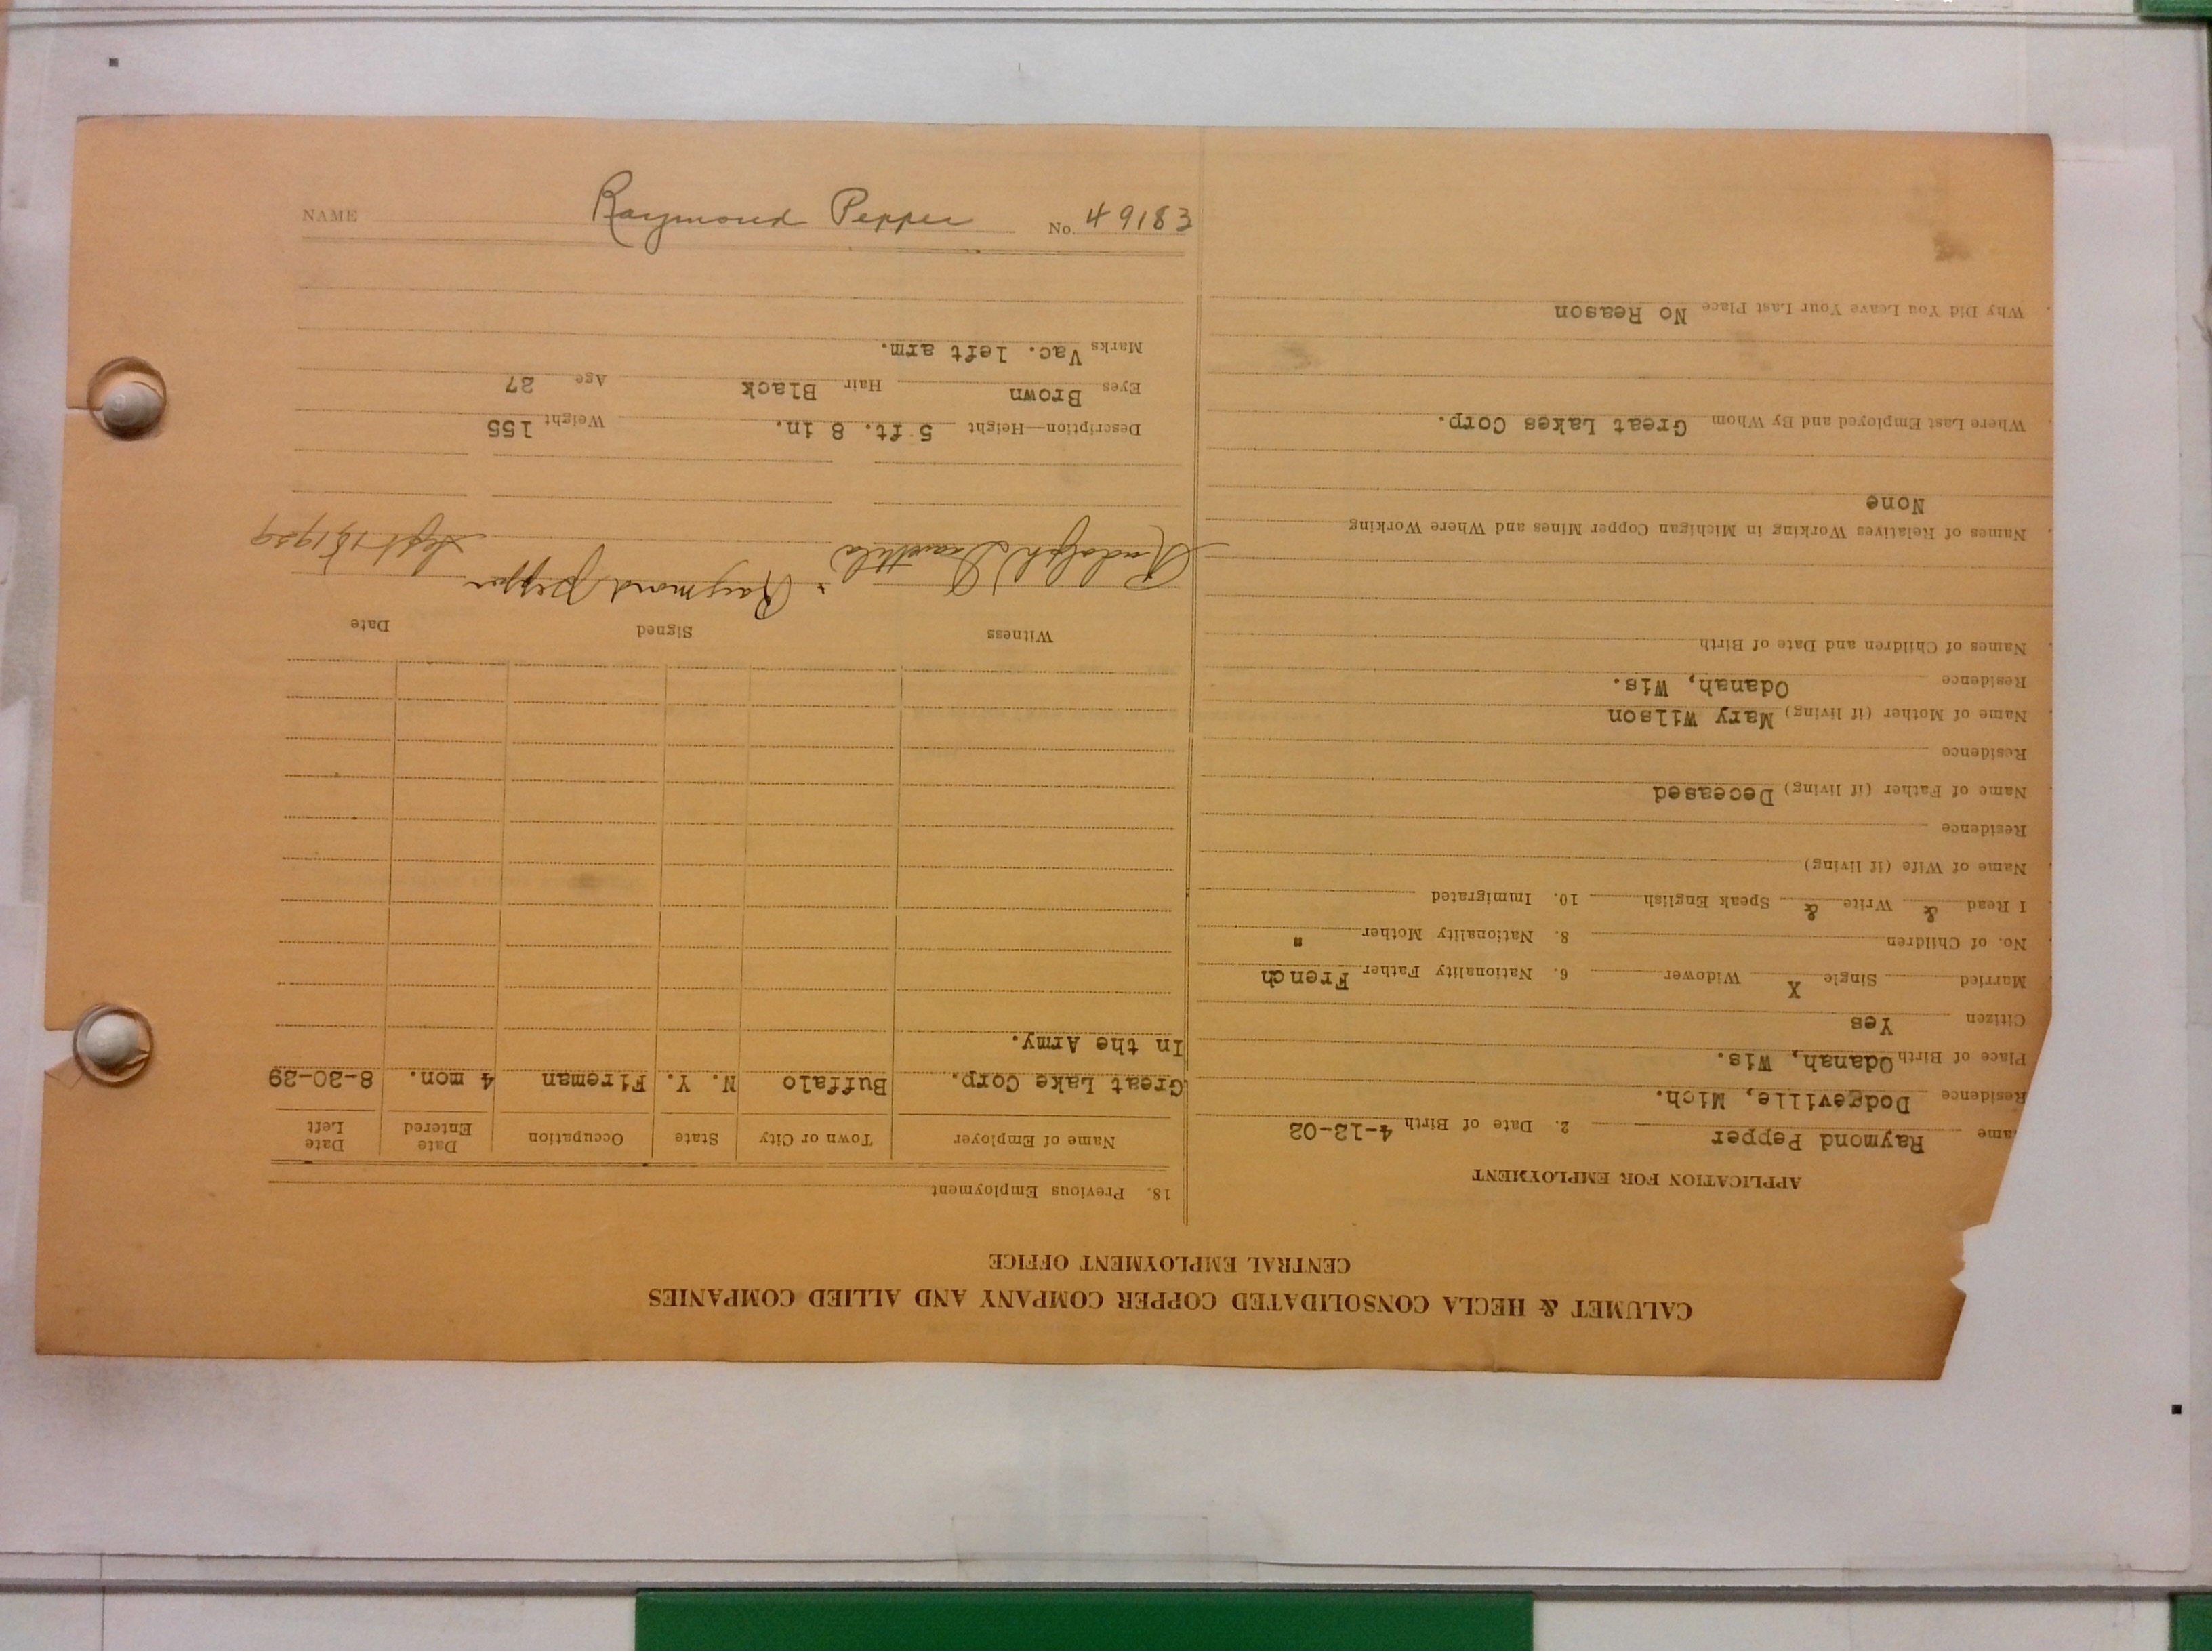 CALUMET & HECLA CONSOLIDATED COPPER COMPANY AND ALLIED COMPANIES
CENTRAL EMPLOYMENT OFFICE
APPLICATION FOR EMPLOYMENT
ame Raymond Pepper 2. Date of Birth 4-12-02
Residence Dodgeville, Mich.
Place of Birth Odanah, Wis.
Citizen Yes
Married Single X Widower 6. Nationality Father French
No. of Children 8. Nationality Mother "
I Read & Write & Speak English 10. Immigrated
Name of Wife (if living)
Residence
Name of Father (if living) Deceased
Residence
Name of Mother (if living) Mary Wilson
Residence Odanah, Wis.
Names of Children and Date of Birth
Names of Relatives Working in Michigan Copper Mines and Where Working
None
Where Last Employed and By Whom Great Lakes Corp.
Why Did You Leave Your Last Place No Reason
18. Previous Employment
Name of Employer Town or City State Occupation Date Entered Date Left
Great Lake Corp. Buffalo N. Y. Fireman 4 mon. 8-30-39
In the Army.
Witness Signed Date
Rudolph x Raymond Pepper Sept 1939
Description—Height 5 ft. 8 in. Weight 155
Eyes Brown Hair Black Age 37
Marks Vac. left arm.
NAME Raymond Pepper No. 49183